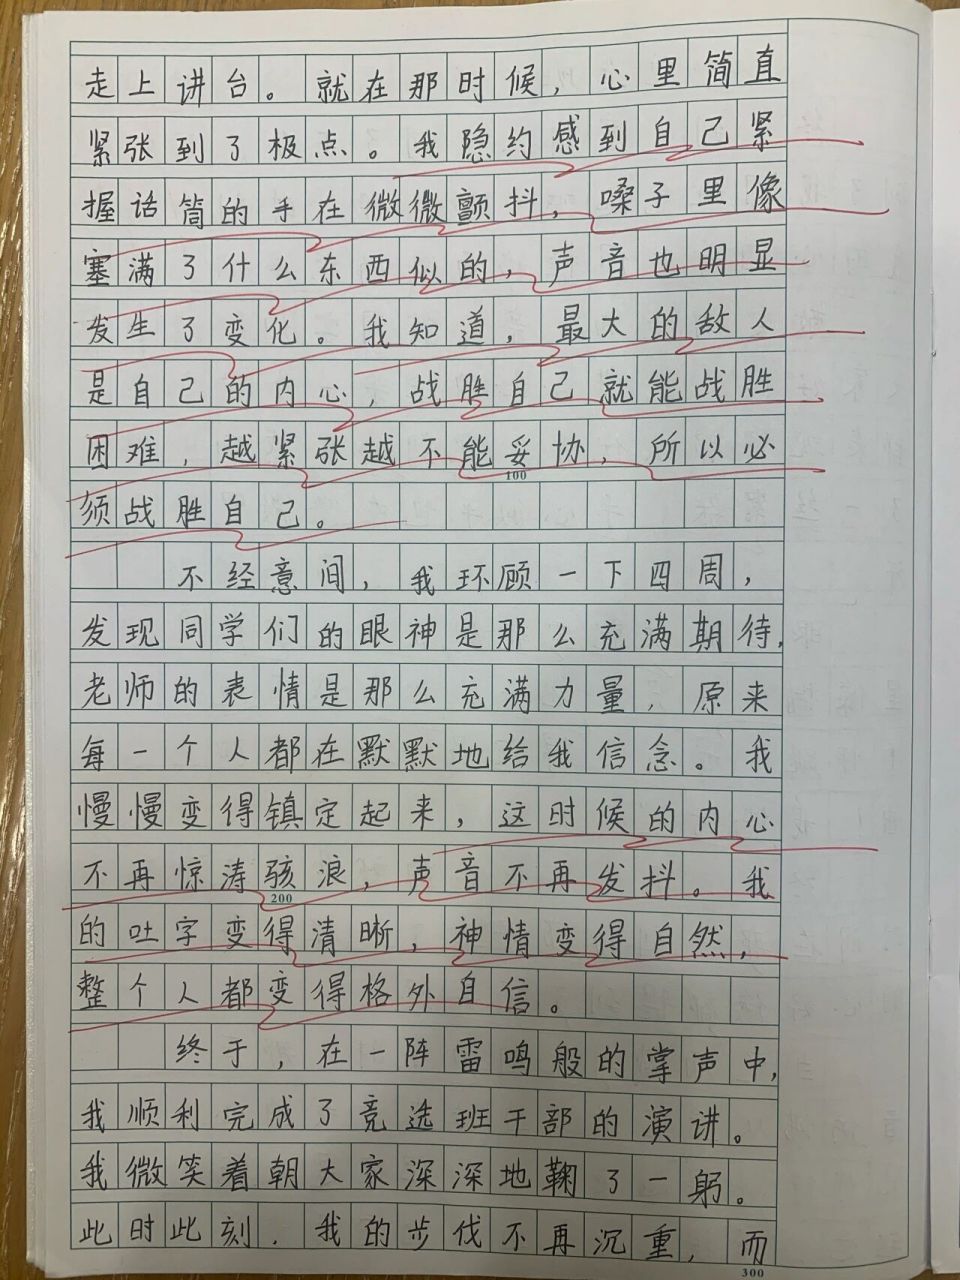 走上讲台。就在那时候，心里简直
紧张到了极点。我隐约感到自己紧
握话筒的手在微微颤抖，嗓子里像
塞满了什么东西似的，声音也明显
发生了变化。我知道，最大的敌人
是自己的内心，战胜自己就能战胜
困难，越紧张越不能妥协，所以必
100
须战胜自己。
不经意间，我环顾一下四周，
发现同学们的眼神是那么充满期待，
老师的表情是那么充满力量，原来
每一个人都在默默地给我信念。我
慢慢变得镇定起来，这时候的内心
不再惊涛骇浪，声音不再发抖。我
200
的吐字变得清晰，神情变得自然，
整个人都变得格外自信。
终于，在一阵雷鸣般的掌声中，
我顺利完成了竞选班干部的演讲。
我微笑着朝大家深深地鞠了一躬。
此时此刻．我的步伐不再沉重，而
300